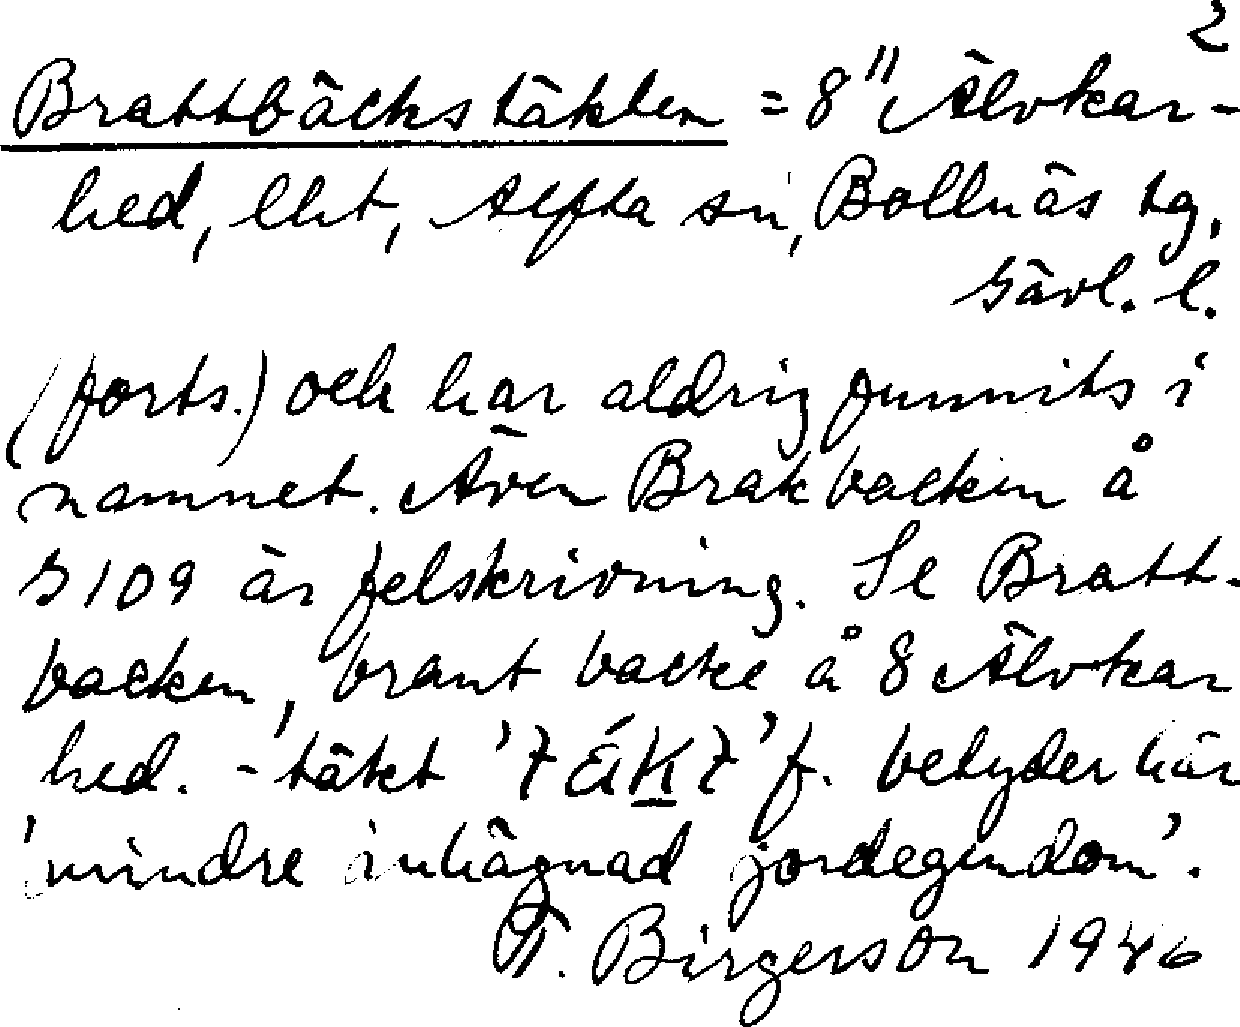 2
Brattbäckstäkten = 8" Älvkar-
hed, ekt, Alfta sn, Bollnäs tg,
Gävl. l.
(forts.) och har aldrig funnits i
namnet. Även Brakbacken å
G109 är felskrivning. Se Bratt-
backen, brant backe å 8 Älvkar
hed. -täkt 'tÄ́Kt' f. betyder här
'mindre inhägnad jordegendom'.
T. Birgerson 1946